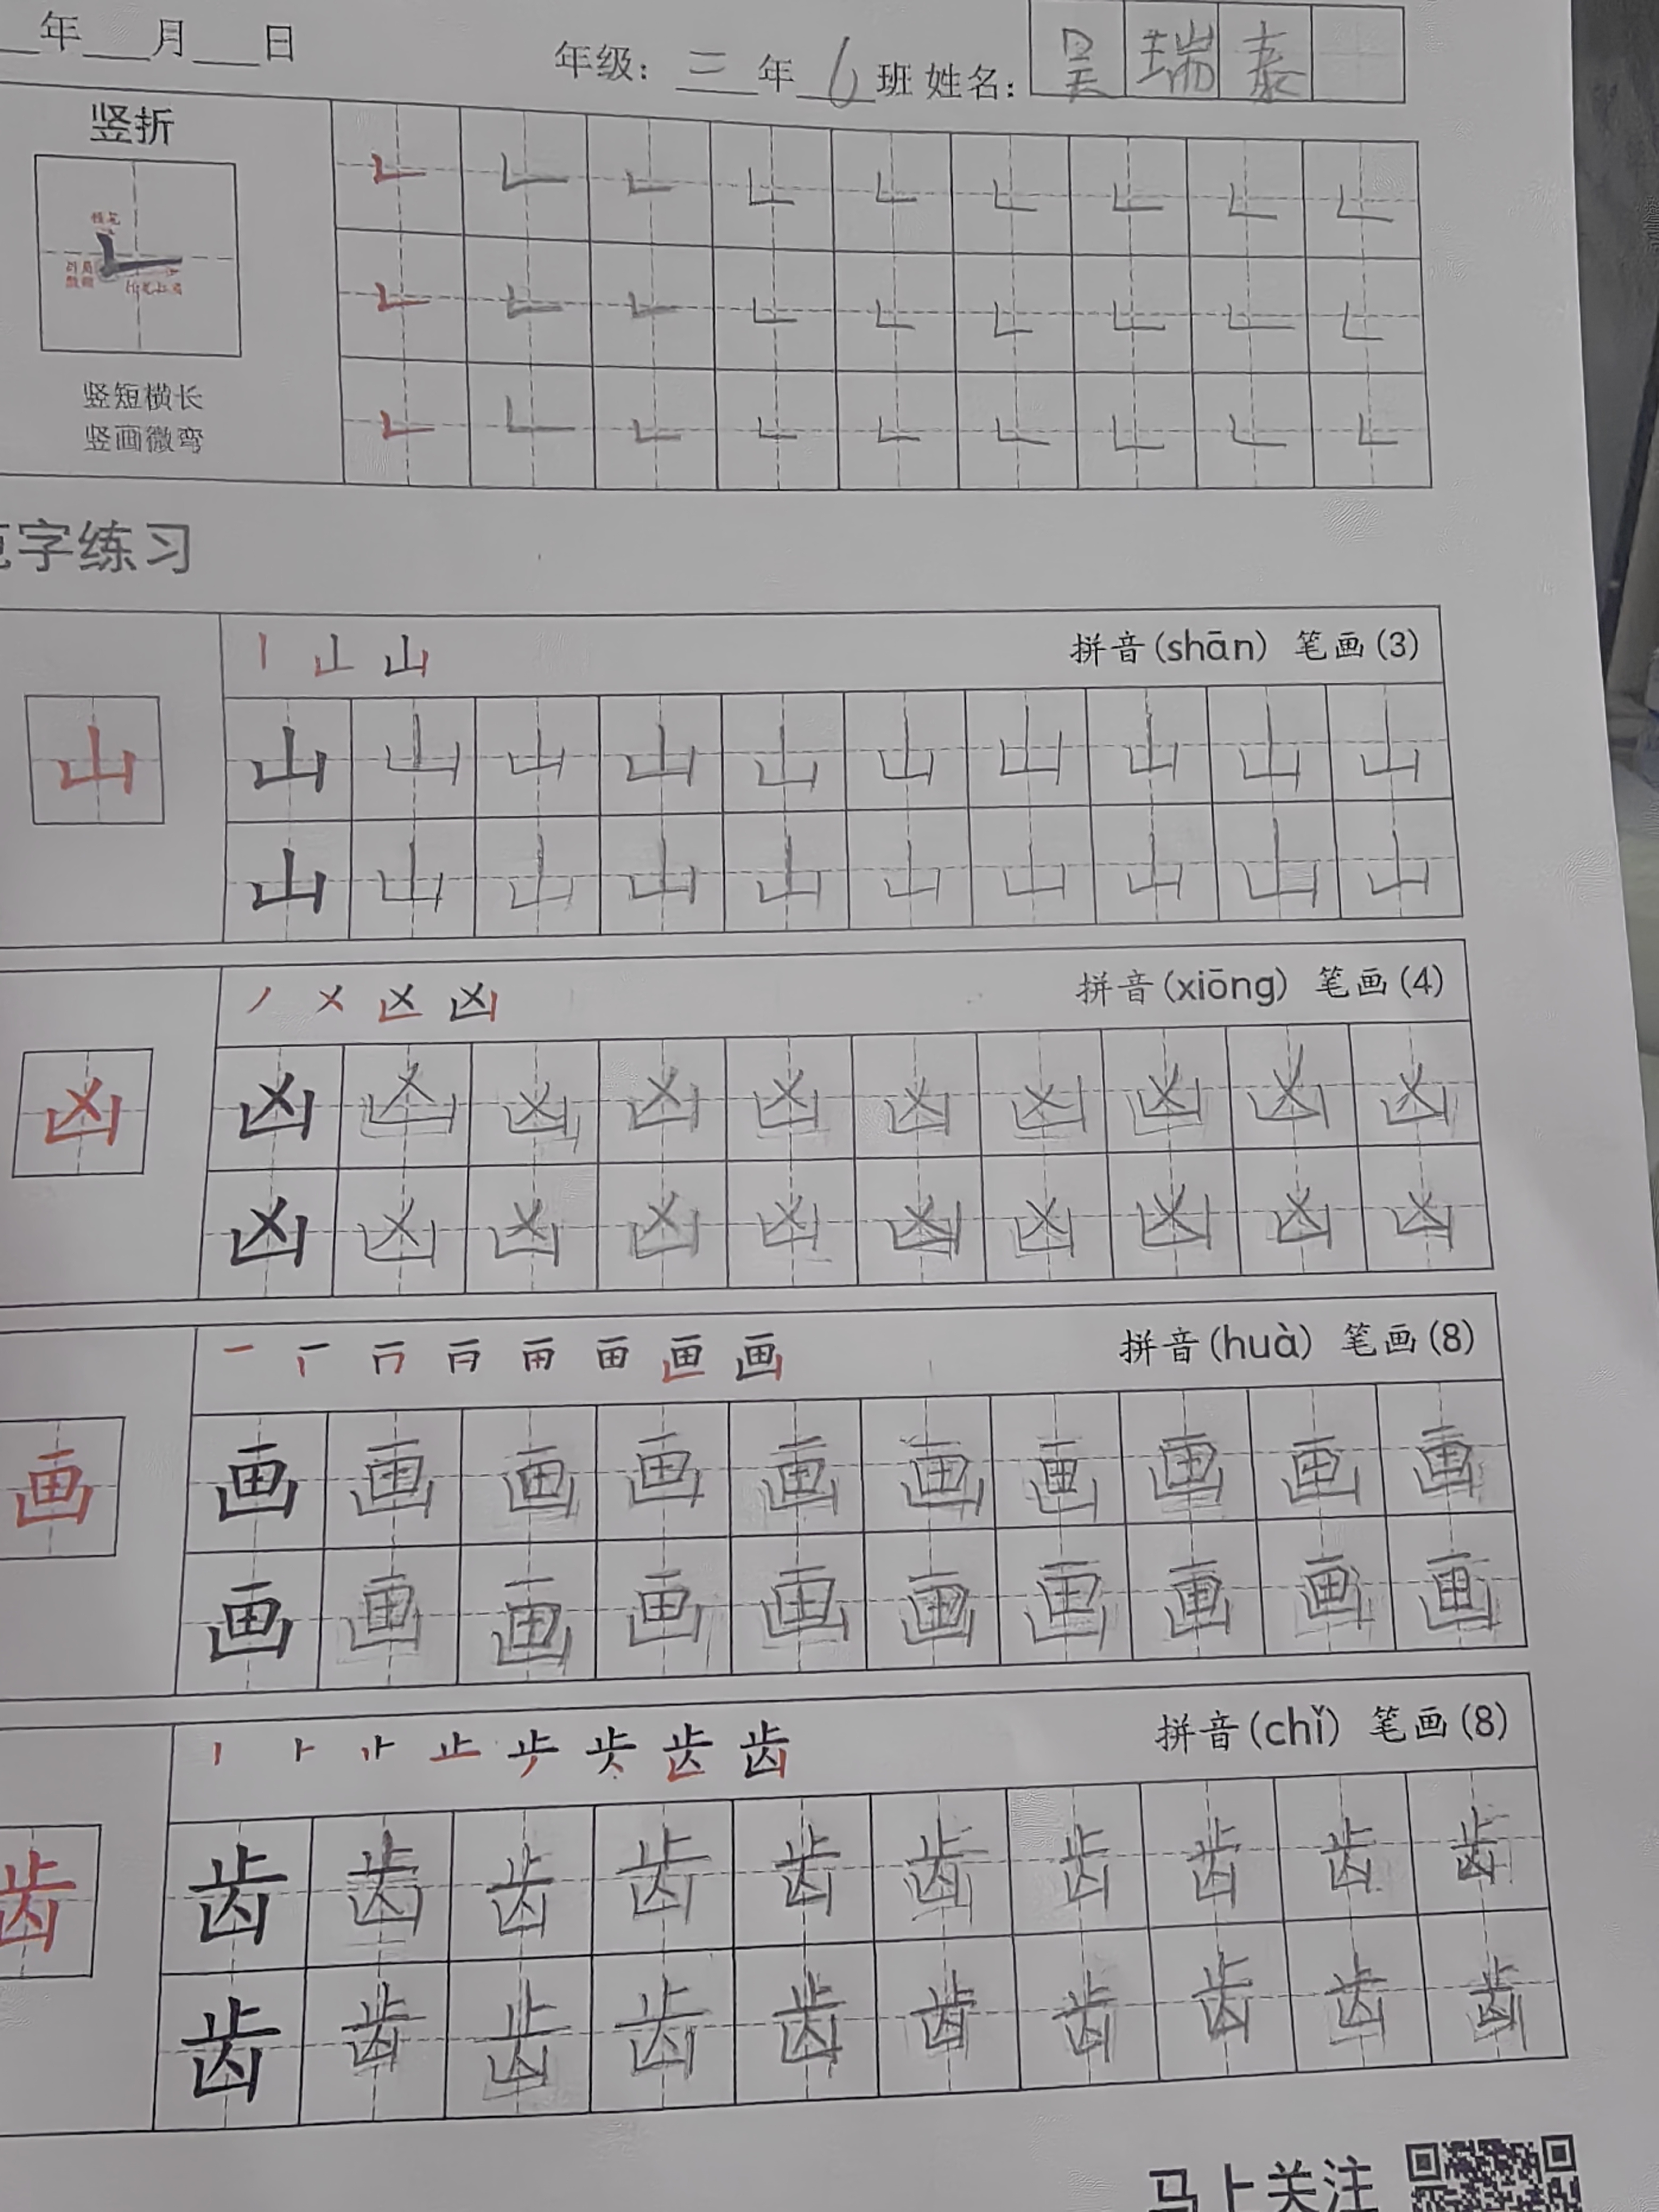 年 月 日 年级：三年6班 姓名：吴瑞泰
竖折
竖短横长
竖画微弯
字练习
拼音(shān) 笔画(3)
山 山 山 山 山 山 山 山 山 山 山
山 山 山 山 山 山 山 山 山 山
拼音(xiōng) 笔画(4)
凶 凶 凶 凶 凶 凶 凶 凶 凶 凶 凶
凶 凶 凶 凶 凶 凶 凶 凶 凶 凶
拼音(huà) 笔画(8)
画 画 画 画 画 画 画 画 画 画 画
画 画 画 画 画 画 画 画 画 画
拼音(chǐ) 笔画(8)
齿 齿 齿 齿 齿 齿 齿 齿 齿 齿 齿
齿 齿 齿 齿 齿 齿 齿 齿 齿 齿
马上关注